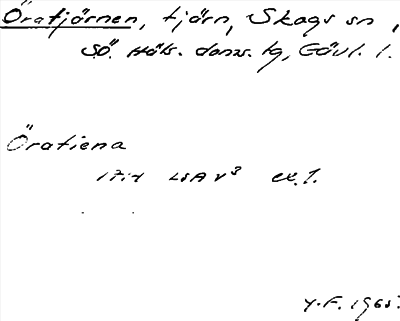 Öratjärnen, tjärn, Skogs sn,
Sö. Häls. doms. tg, Gävl. l.
Öratiena
LSA
Y.F. 1965.